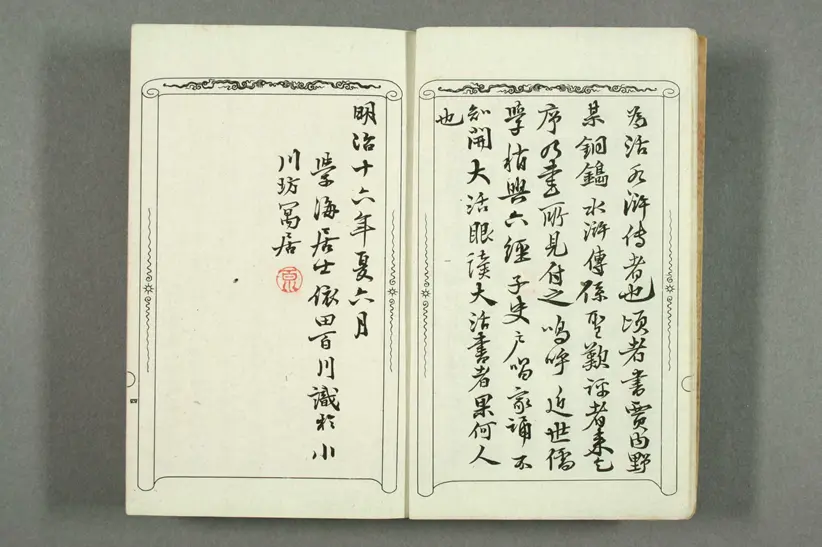 為活水滸傳者也頃者書賈内野
某銅鐫水滸傳係聖歎評者来乞
序乃書所見付之嗚呼近世儒
學稍興六經子史戶唱家誦不
知開大活眼讀大活書者果何人
也
明治十六年夏六月
學海居士依田百川識於小
川坊寓居
四